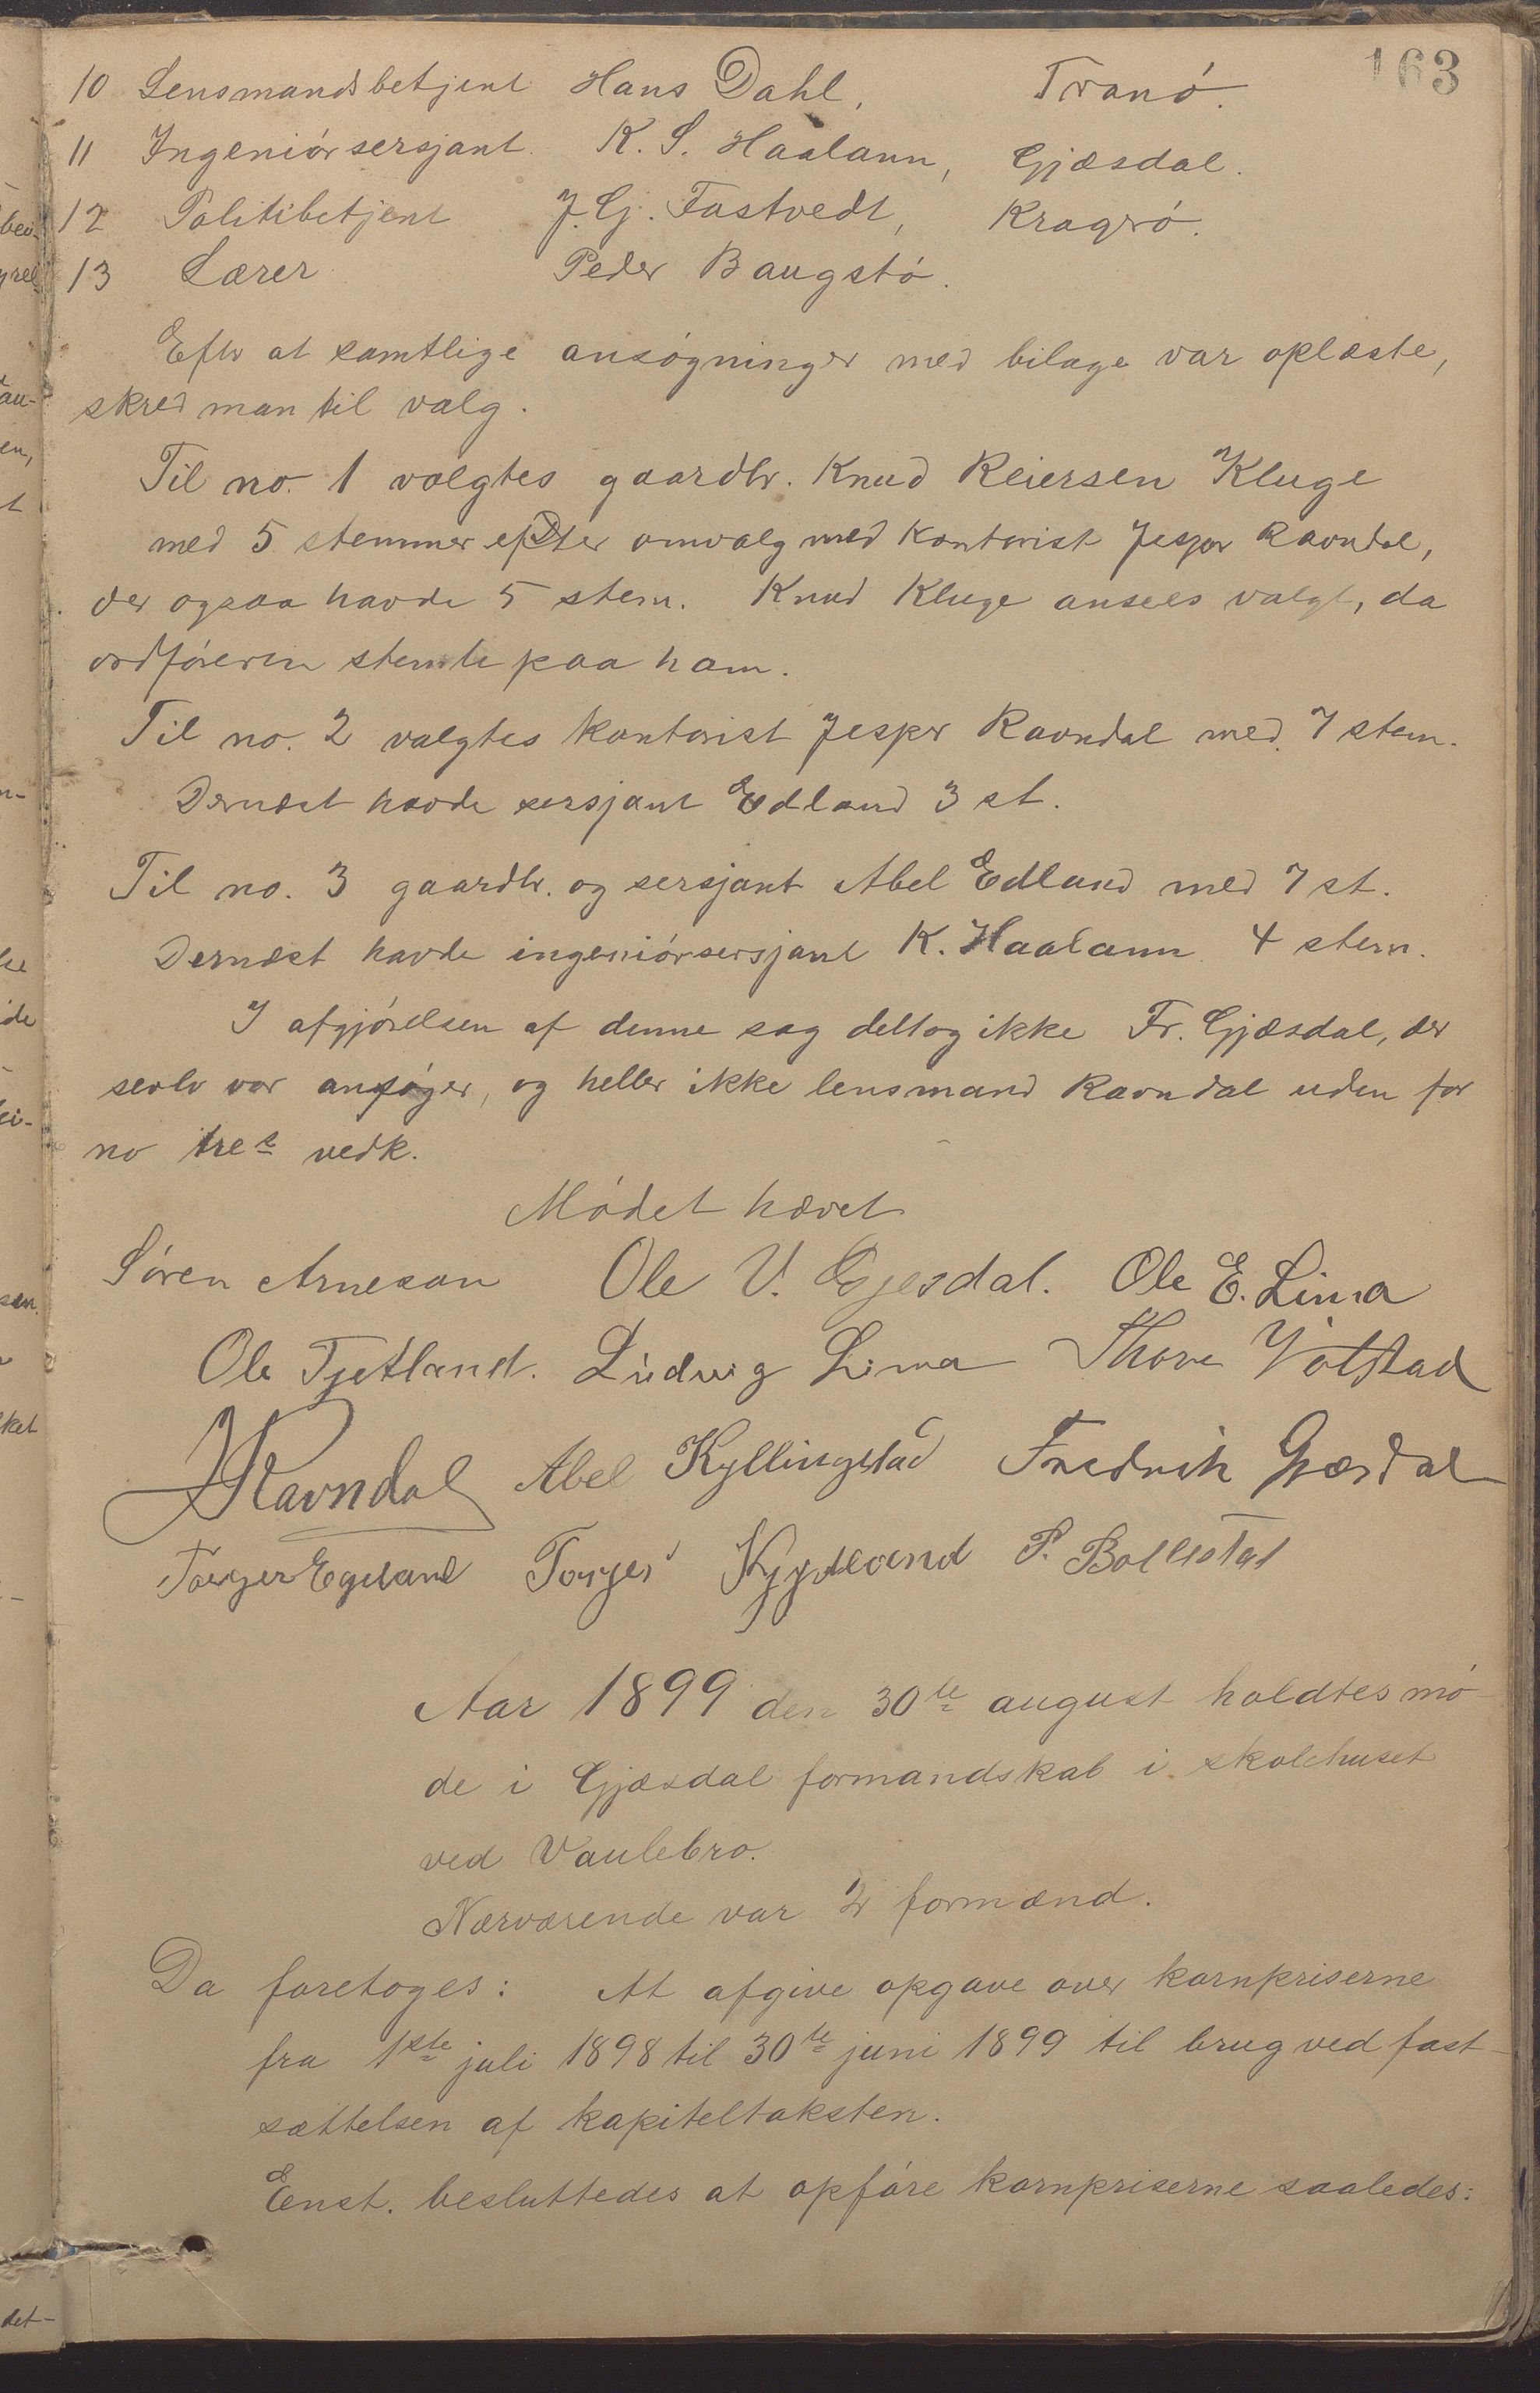 163
10 Lensmandsbetjent Hans Dahl, Tranó.
11 Ingeniórsersjant. K. S. Haalann, Gjæsdal.
12 Politibetjent J. Gj. Tostvedt, Krageró.
13 Lærer Peder Baugstó.
Efter at samtlige ansógninger med bilage var oplæste,
skred man til valg.
Til no. 1 valgtes gaardbr. Knud Reiersen Kluge
med 5 stemmer efter omvalg med kontorist Jesper Ravndal,
der ogsaa havde 5 stem. Knud Kluge ansees valgt, da
ordfóreren stemte paa ham.
Til no. 2 valgtes kontorist Jesper Ravndal med 7 stem.
Dernæst havde sersjant Edland 3 st.
Til no. 3 gaardbr. og sersjant Abel Edland med 7 st.
Dernæst havde ingeniórsersjant K. Haalann 4 stem.
I afgjórelsen af denne sag deltog ikke Fr. Gjæsdal, der
selv var ansóger, og heller ikke lensmand Ravndal uden for
no tres vedk.
Módet hævet
Sóren Arneson Ole V. Gjesdal. Ole E. Lima
Ole Tjetland. Ludvig Lima Thore Volstad
Ravndal Abel Kyllingstad Fredrik Gjæsdal
Torger Egeland Torger Kydland P. Bollestad
Aar 1899 den 30te august holdtes mó-
de i Gjæsdal formandskab i skolehuset
ved Vaulebro.
Nærværende var formænd.
Da foretoges: At afgive opgave over kornpriserne
fra 1ste juli 1898 til 30te juni 1899 til brug ved fast-
sættelsen af kapiteltaksten.
Enst. besluttedes at opfóre kornpriserne saaledes: